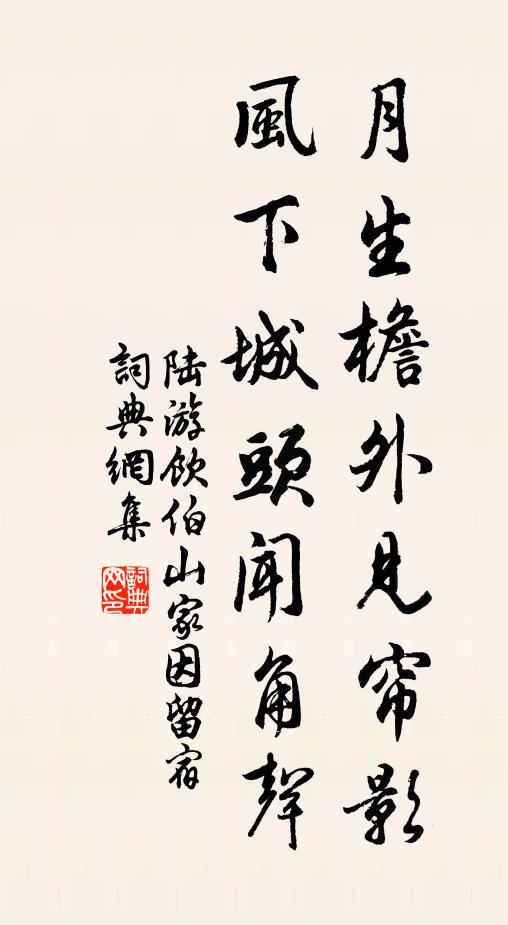 月生檐外見帘影
風下城頭聞角聲
陆游飲伯山家因留宿
詞典網集
詞典
网印